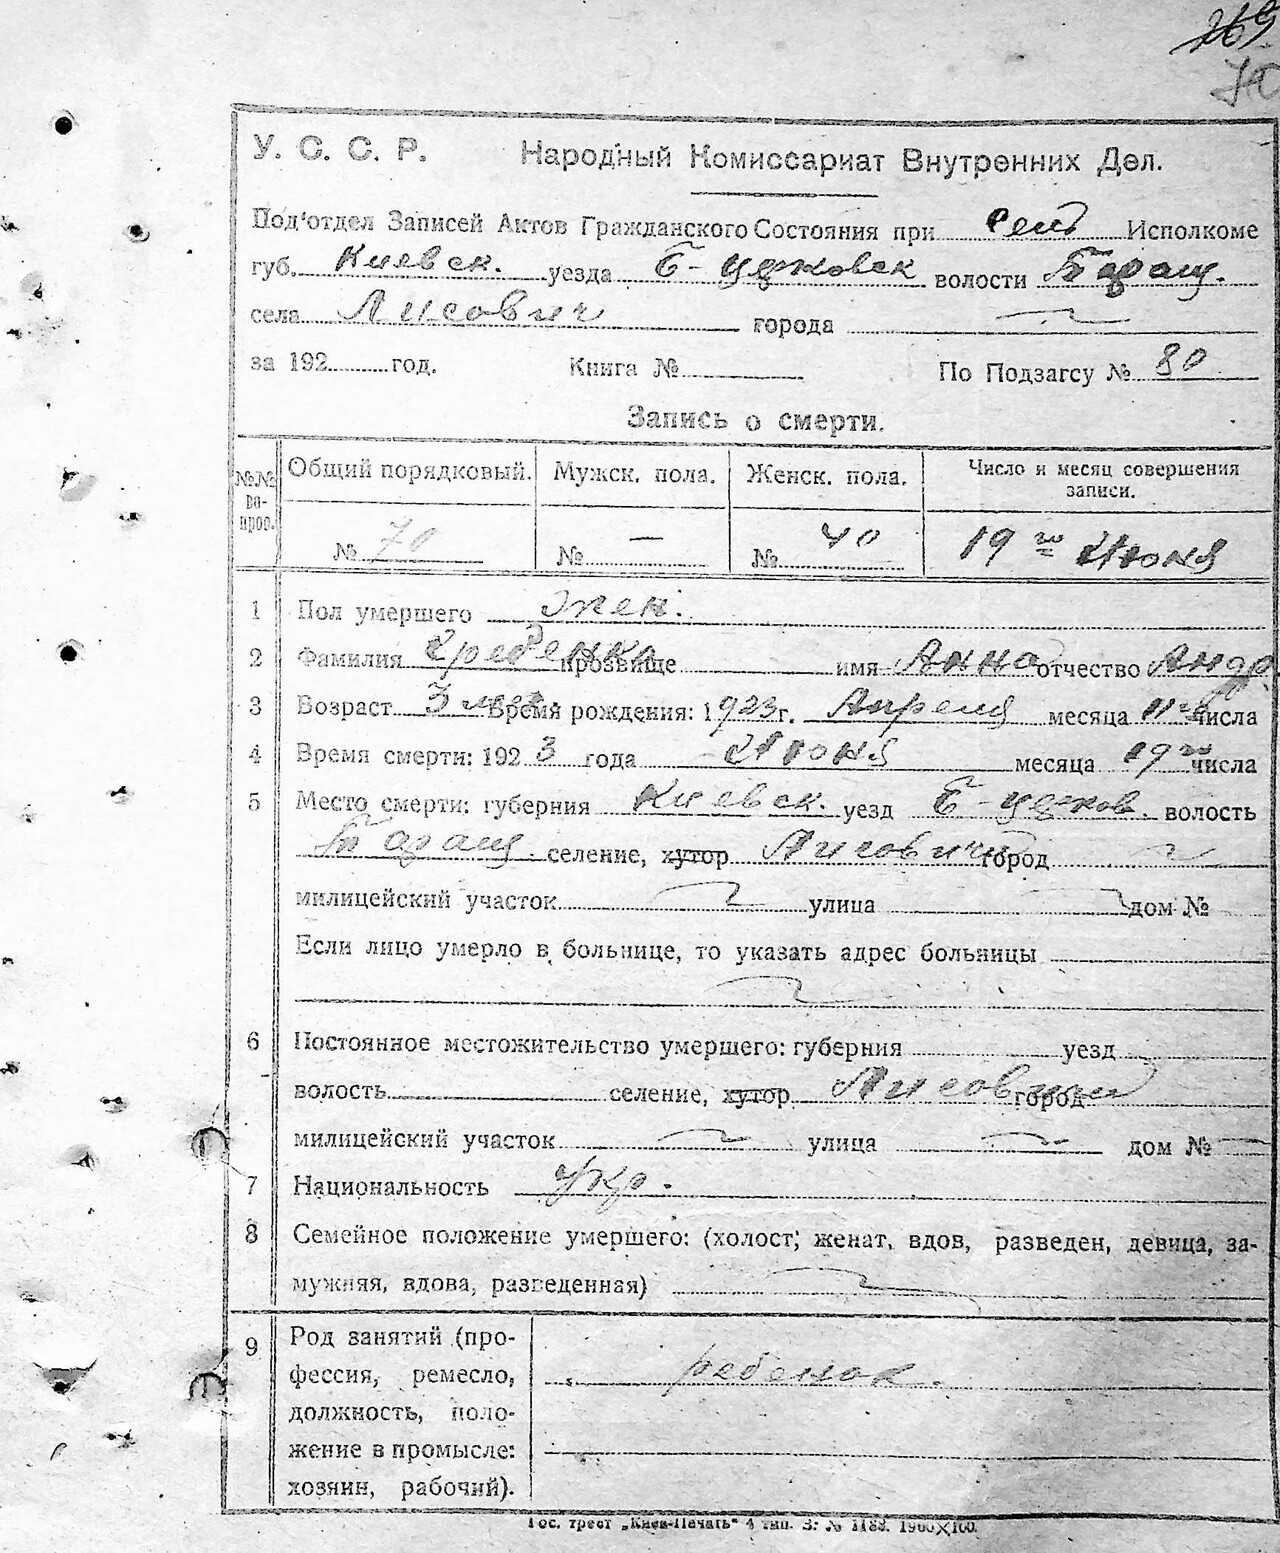 269
70
У. С. С. Р. Народный Комиссариат Внутренних Дел.
Под'отдел Записей Актов Гражданского Состояния при Сель Исполкоме
губ. Киевск. уезда Б-Церковск волости Таращ.
села Лисович города
за 192 год. Книга № По Подзагсу № 80
Запись о смерти.
№№ вопрос. Общий порядковый. Мужск. пола. Женск. пола. Число и месяц совершения записи.
№ 70 № — № 40 19го Июня
1 Пол умершего Жен.
2 Фамилия прозвище имя Анна отчество Андр
3 Возраст 3 мес. Время рождения: 1923 г. Апреля месяца 11го числа
4 Время смерти: 1923 года Июня месяца 19го числа
5 Место смерти: губерния Киевск. уезд Б-Церков. волость
Таращ. селение, хутор Лисовичи город
милицейский участок улица дом №
Если лицо умерло в больнице, то указать адрес больницы
6 Постоянное местожительство умершего: губерния уезд
волость селение, хутор Лисовичи город
милицейский участок улица дом №
7 Национальность Укр.
8 Семейное положение умершего: (холост, женат, вдов, разведен, девица, за-
мужняя, вдова, разведенная)
9 Род занятий (про-
фессия, ремесло, ребенок.
должность, поло-
жение в промысле:
хозяин, рабочий).
Гос. трест „Киев-Печать" 4 тип. З. № 1188. 1900×100.